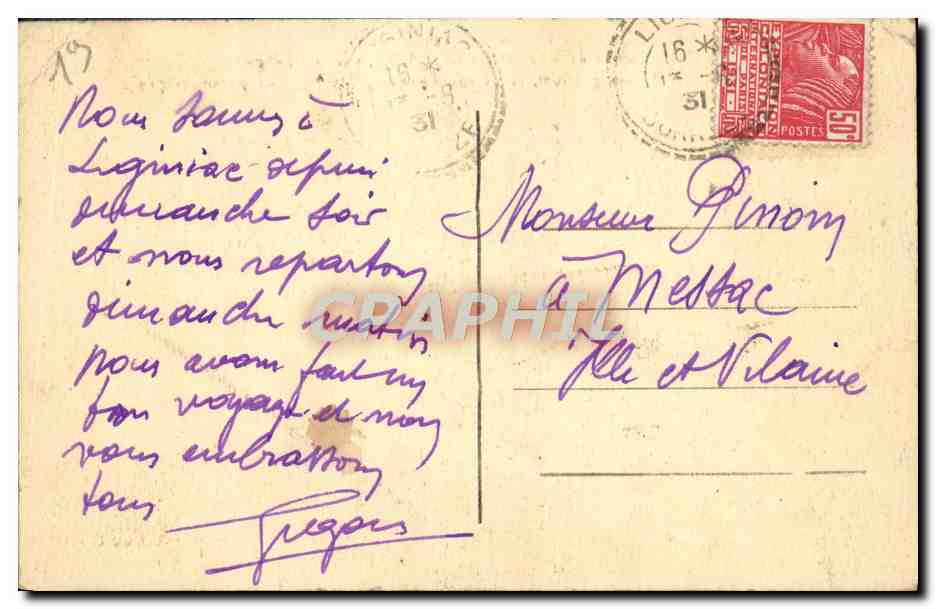 19
Nous sommes à
Liginiac depuis
dimanche soir
et nous repartons
dimanche matin
nous avons fait un
bon voyage et nous
vous embrassons
tous
Gregoris
LIGINIAC
16 *
8
31
ZE
LIG
16 *
31
CORR ZE
EXPOSITION
COLONIALE
INTERNATIONALE
DE PARIS
1931
POSTES
50c
Monsieur Pinson
à Messac
Ille et Vilaine
CRAPHIL